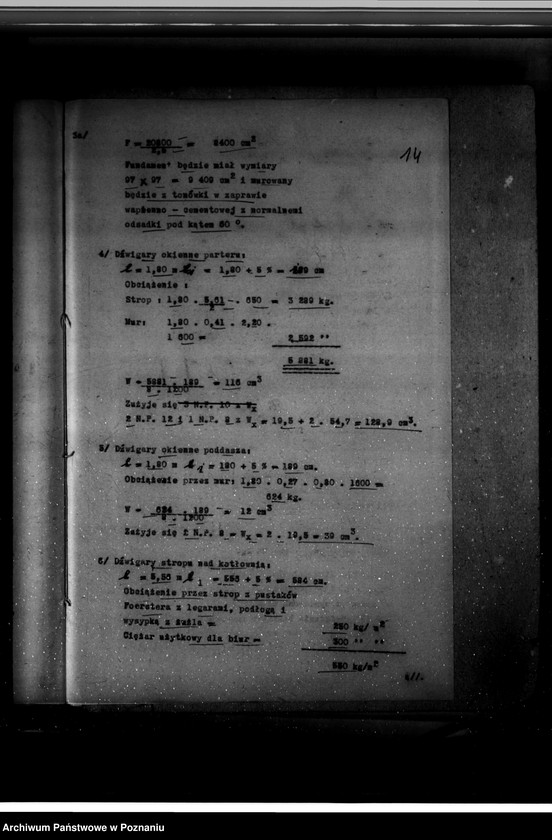 3a/
14
F = 20800 = 2400 cm²
Fundament będzie miał wymiary
97 x 97 = 9 409 cm² i murowany
będzie z tonówki w zaprawie
wapienno - cementowej z normalnemi
odsadki pod kątem 60 °.
4/ Dźwigary okienne parteru:
l = 1,80 m l₁ = 1,80 + 5 % = 189 cm
Obciążenie :
Strop : 1,80 . 5,61 . 650 = 3 289 kg.
2
Mur: 1,80 . 0,41 . 2,20 .
1 600 = 2 592 "
5 881 kg.
W = 5881 . 189 = 116 cm³
8 . 1200
Zużyje się 3 N.P. 10 z Wx
2 N.P. 12 i 1 N.P. 8 z Wx = 19,5 + 2 . 54,7 = 128,9 cm³.
5/ Dźwigary okienne poddasza:
l = 1,80 m l₁ = 180 + 5 % = 189 cm.
Obciążenie przez mur: 1,80 . 0,27 . 0,80 . 1600 =
624 kg.
W = 624 . 189 = 12 cm³
8 . 1200
Zużyje się 2 N.P. 8 = Wx = 2 . 19,5 = 39 cm³.
6/ Dźwigary stropu nad kotłownią:
l = 5,55 m l₁ = 555 + 5 % = 584 cm.
Obciążenie przez strop z pustaków
Foerstera z legarami, podłogą i
wysypką z żużla = 250 kg/m²
Ciężar użytkowy dla biur = 300 " "
550 kg/m²
4//.
Archiwum Państwowe w Poznaniu